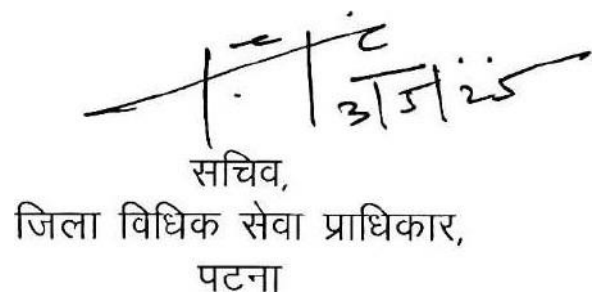 3|5|25
सचिव,
जिला विधिक सेवा प्राधिकार,
पटना